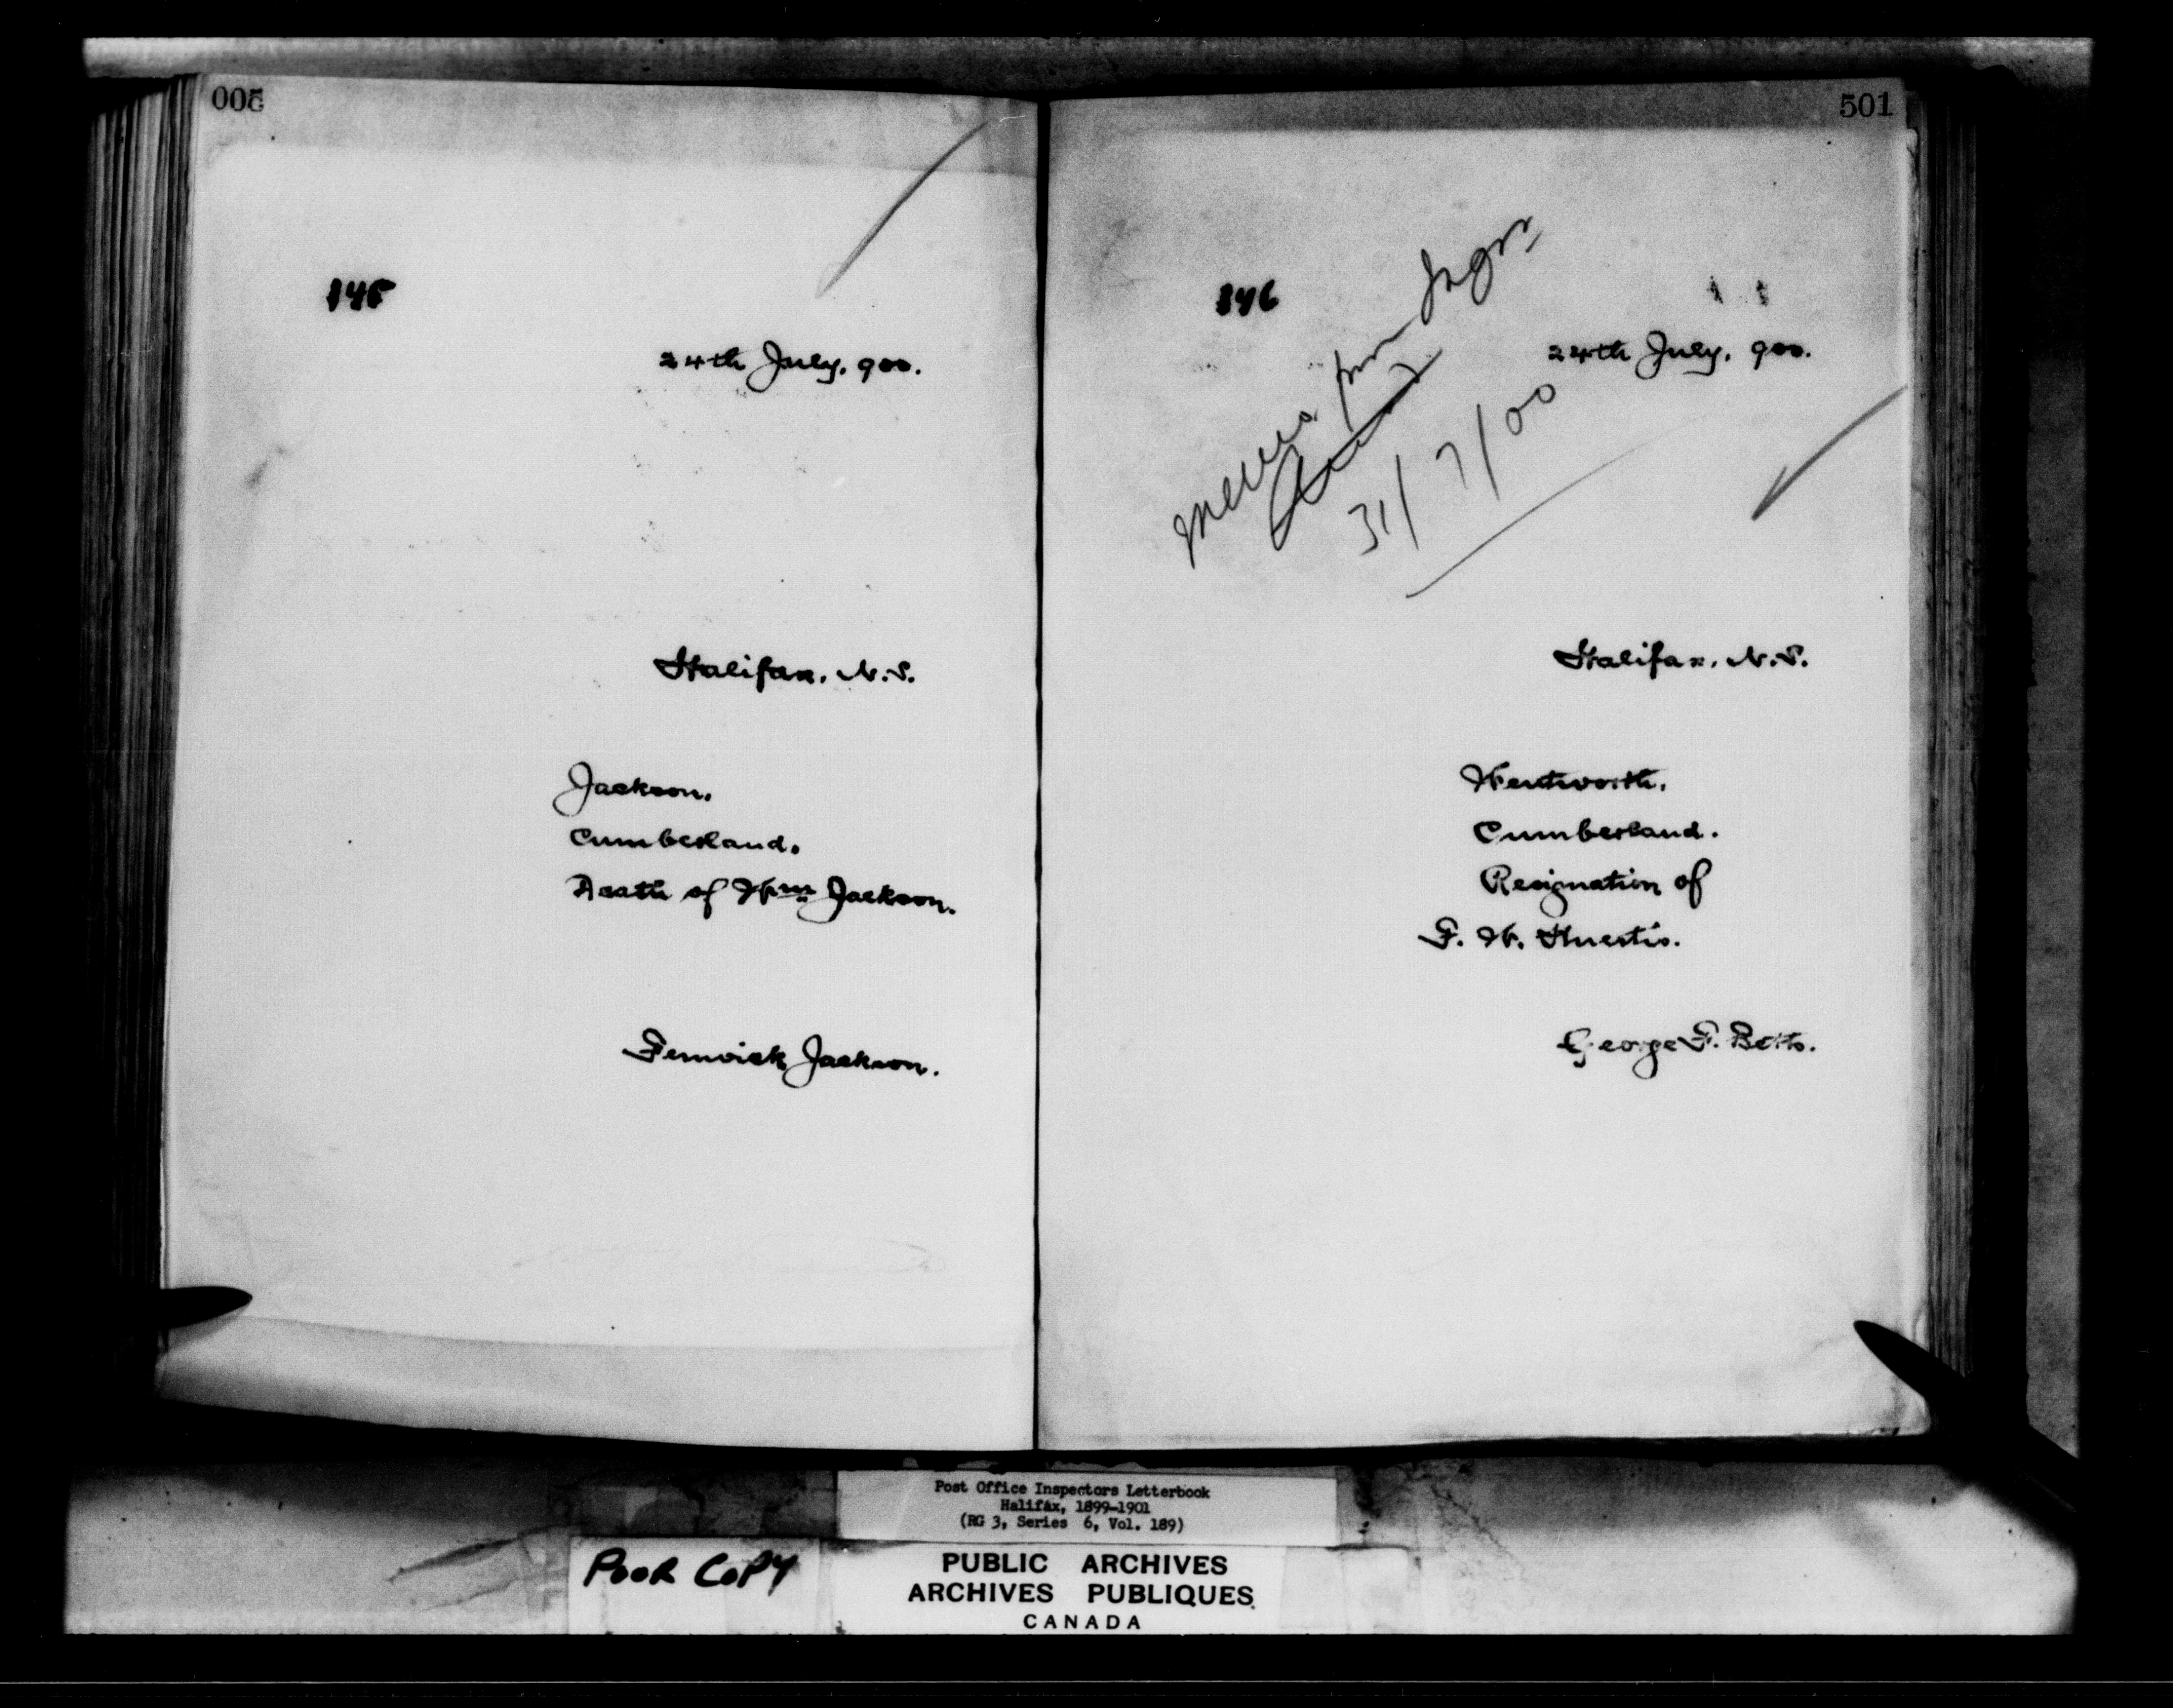 005
145
24th July, 900.
Halifax, N.S.
Jackson,
Cumberland,
Death of Wm Jackson.
Fenwick Jackson.
501
146
24th July, 900.
31/7/00
Halifax, N.S.
Wentworth,
Cumberland.
Resignation of
F. W. Huestis.
George F. Betts.
Post Office Inspectors Letterbook
Halifax, 1899-1901
(RG 3, Series 6, Vol. 189)
POOR COPY
PUBLIC ARCHIVES
ARCHIVES PUBLIQUES
CANADA